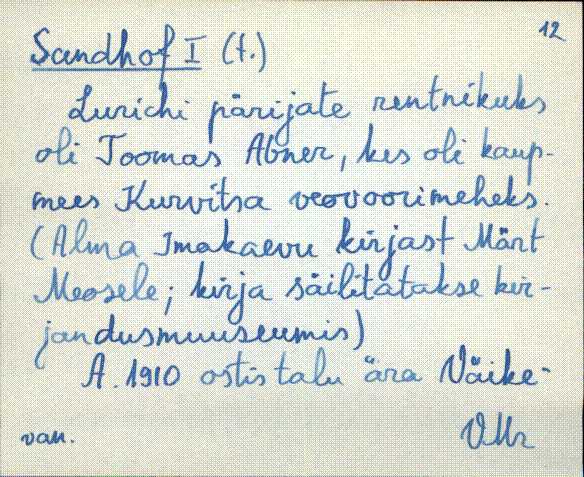 12
Sandhof I (t.)
Lurichi pärijate rentnikuks
oli Toomas Abner, kes oli kaup-
mees Kurvitsa veovoorimeheks.
(Alma Imakaevu kirjast Märt
Meosele; kirja säilitatakse kir-
jandusmuuseumis)
A. 1910 ostis talu ära Väike-
van.